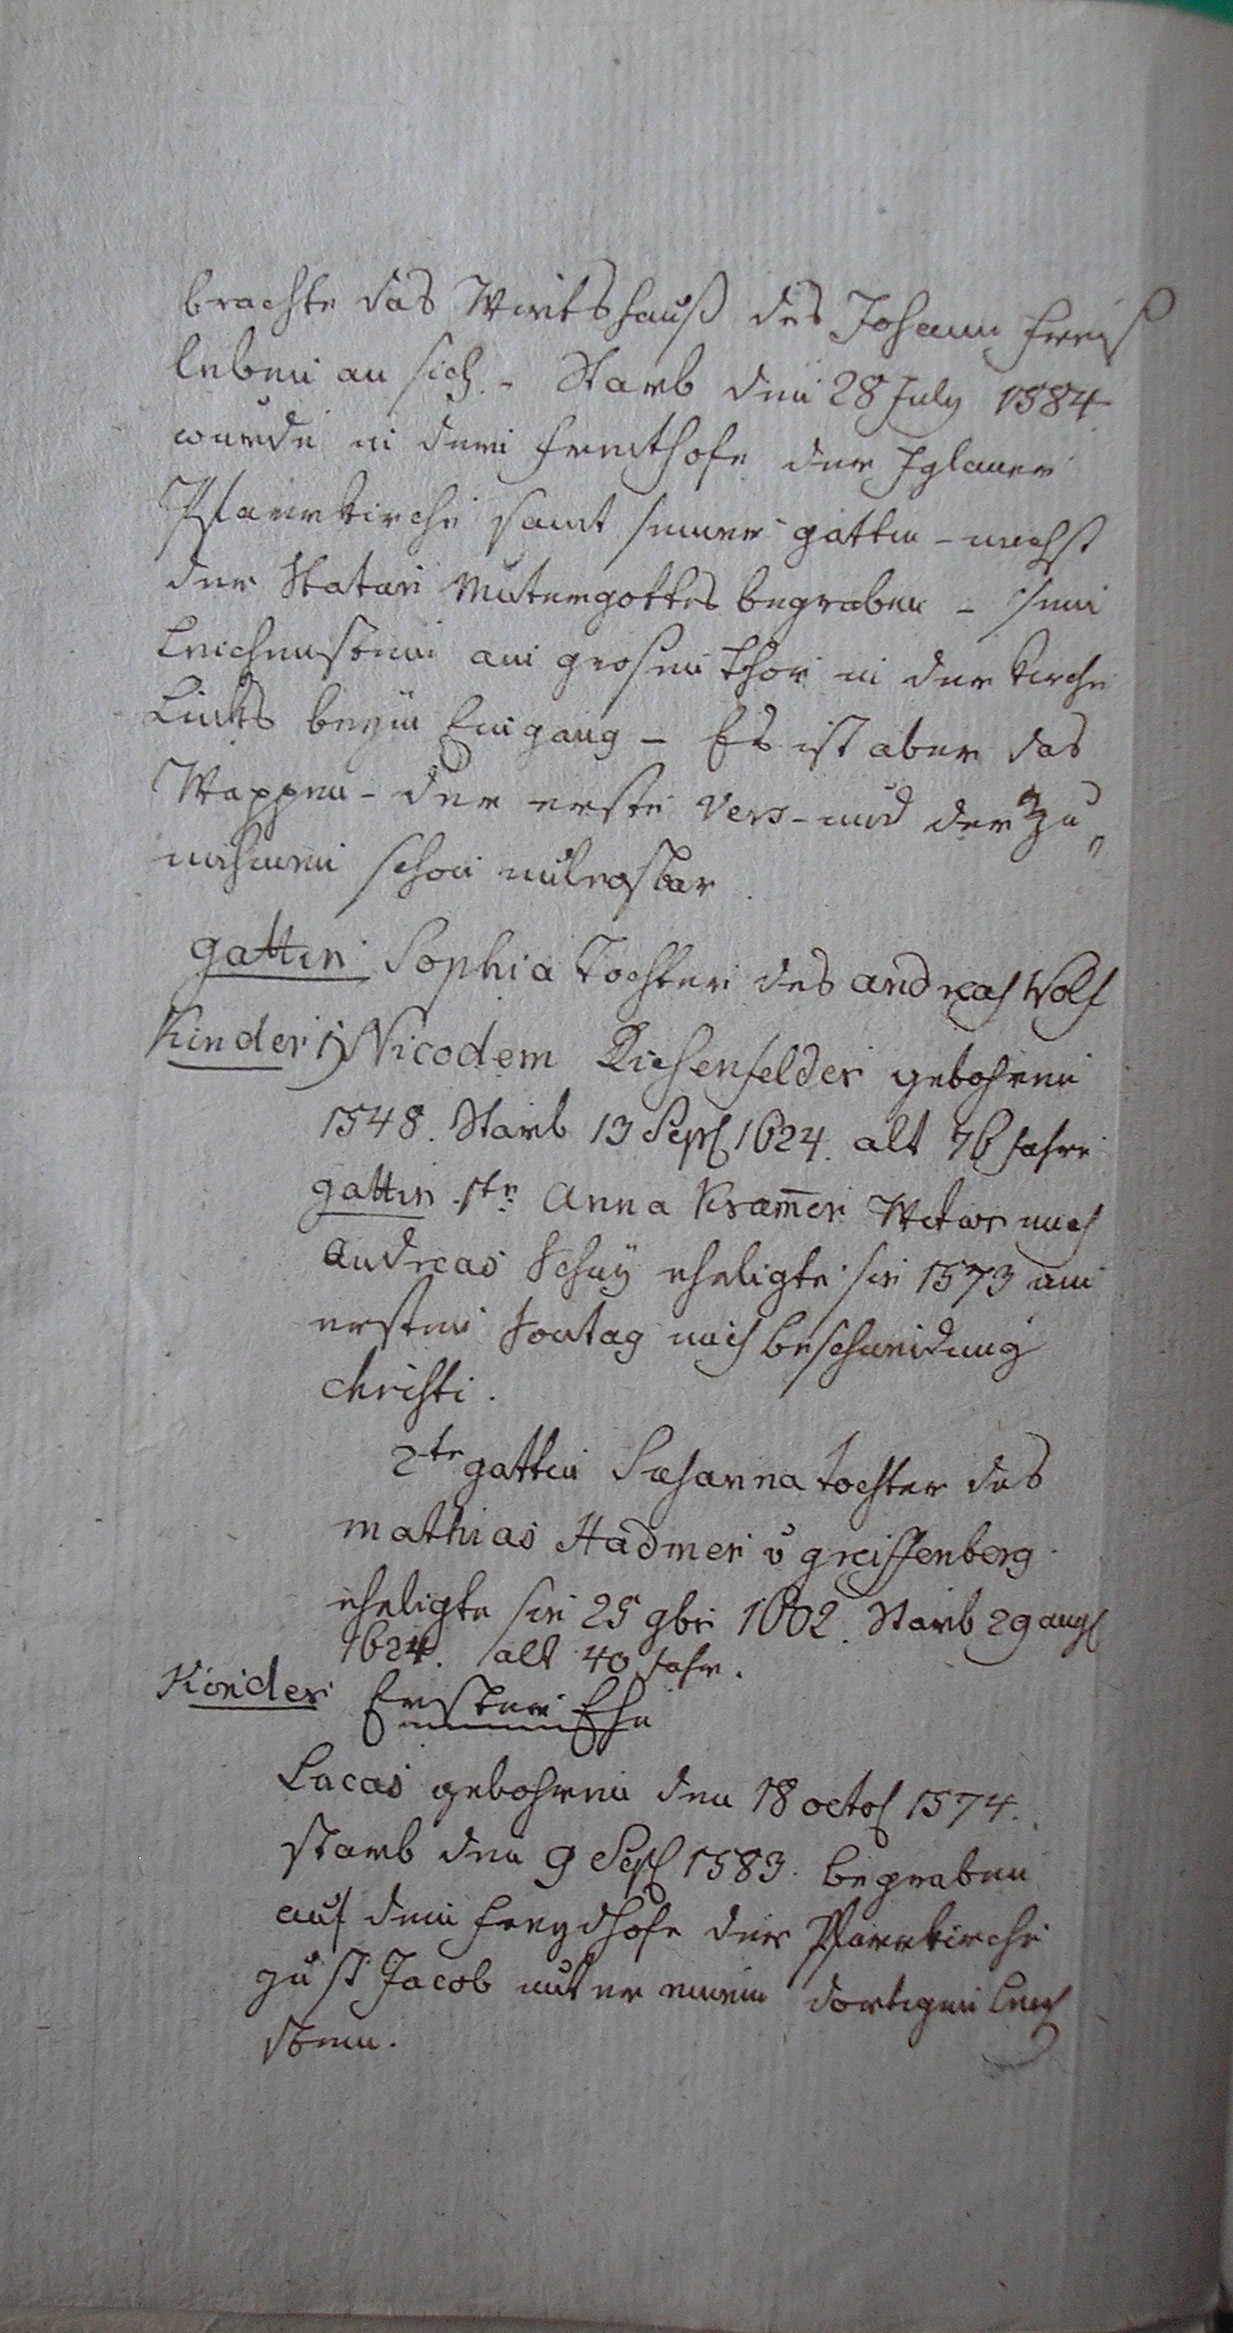 brachte das Wirtshauß des Johann Freiß
leben an sich. - Starb den 28 July 1584.
wurde in den Freithofe der Iglauer
Pfarrkirche samt seiner gattin - nechst
der Statue Mutergottes begraben - sein
Leichenstein am grosen Thor in der Kirche
Links beym Eingang - Es ist aber das
Wappen - der erste Vers - und der Zu„
nahmen schon unlesbar.
gattin Sophia Tochter des andreas Wolf
Kinder 1) Nicodem Diesenfelder gebohren
1548. Starb 13 Sept 1624. alt 76 Jahre
gattin 1te Anna Kram̅er Witwe nach
Andreas Schuÿ eheligte sie 1573 am
ersten Sontag nach beschneidung
Christi.
2te gattin Susanna tochter des
mathias Hadmer v greiffenberg
eheligte sie 25 9bri 1602. Starb 29 aug
1624. alt 40 Jahr.
Kinder Ersten Ehe
Lucas gebohren den 18 octob 1574.
starb den 9 Sept 1583. begraben
auf den Freydhofe der Pfarrkirche
zu St Jacob unter einem dortigen Leich
stein.